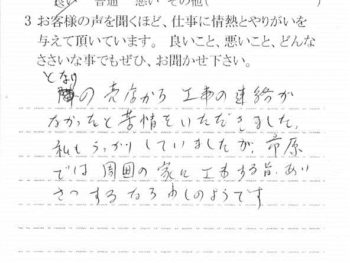 良い 普通 悪い その他(
3 お客様の声を聞くほど、仕事に情熱とやりがいを
与えて頂いています。良いこと、悪いこと、どんな
ささいな事でもぜひ、お聞かせ下さい。
となり
隣の売店から工事の連絡が
なかったと苦情をいただきました。
私もうっかりしていましたが、市原
では周囲の家に工事する旨、あい
さつするならわしのようです